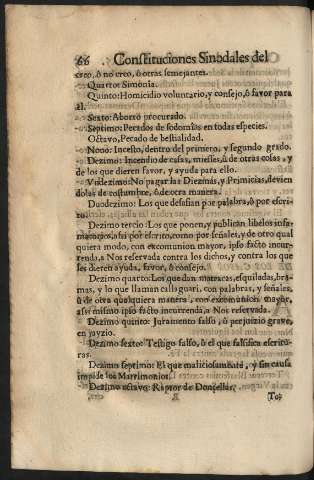 66 . Constituciones Sinodales del
creo, ò no creo, ù otras semejantes.
Quarto: Simonia.
Quinto: Homicidio voluntario, y consejo, ò favor para
èl.
Sexto: Aborto procurado.
Septimo: Pecados de sodomitas en todas especies.
Octavo, Pecado de bestialidad.
Nono: Incesto, dentro del primero, y segundo grado.
Dezimo: Incendio de casas, miesses, ù de otras cosas, y
de los que dieren favor, y ayuda para ello.
Vndezimo: No pagar las Diezmas, y Primicias, devien
dolas de costumbre, ù de otra manera.
Duodezimo: Los que desafian por palabra, ò por escri-
to.
Dezimo tercio: Los que ponen, y publican libelos infa
matorios, assi por escrito, como por señales, y de otro qual
quiera modo, con excomunion mayor, ipso facto incur-
renda, à Nos reservada contra los dichos, y contra los que
les dieren ayuda, favor, ò consejo.
Dezimo quarto: Los que dan matracas, esquiladas, bra-
mas, y lo que llaman calla guari, con palabras, y señales,
ù de otra qualquiera manera, con excomunion mayor,
assi mismo ipso facto incurrenda, à Nos reservada.
Dezimo quinto: Juramento falso, ò perjuizio grave,
en juyzio.
Dezimo sexto: Testigo falso, ù el que falsifica escritu-
ras.
Dezimo septimo: El que maliciosamente, y sin causa
impide los Matrimonios.
Dezimo octavo: Raptor de Doncellas.
To-